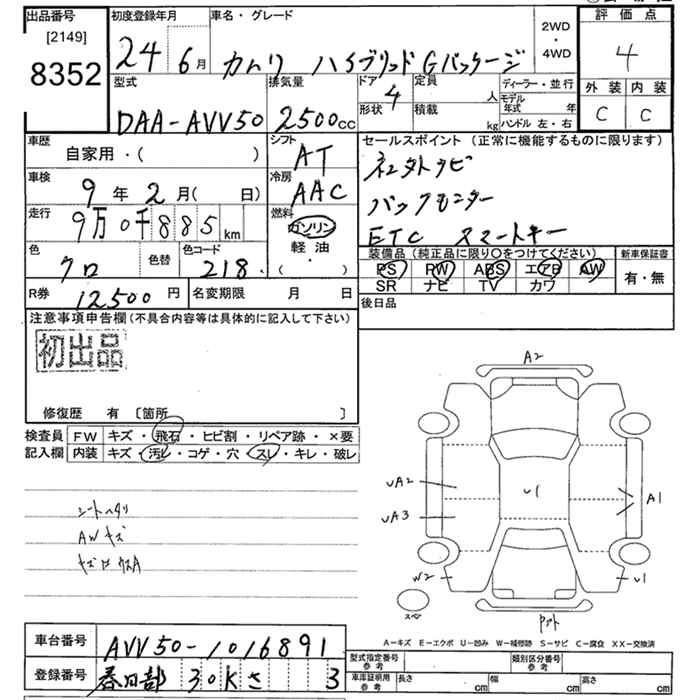 出品番号
[2149]
8352
初度登録年月
24 6月
車名・グレード
カムリ ハイブリッド Gパッケージ
2WD
・
4WD
評価点
4
外装 内装
C C
型式
DAA-AVV50
排気量
2500cc
ドア 4
形状
定員 人
積載 kg
ディーラー・並行
モデル年式 年
ハンドル 左・右
車歴
自家用・( )
シフト
AT
車検
9年2月( 日)
冷房
AAC
走行
9万0千885km
燃料
ガソリン
軽油
( ・ )
色
クロ
色替
色コード
218
R券 12500円
名変期限 月 日
セールスポイント(正常に機能するものに限ります)
バックモニター
ETC スマートキー
装備品(純正品に限り〇をつけてください)
PS PW ABS エアB AW
SR ナビ TV カワ
新車保証書
有・無
後日品
注意事項申告欄(不具合内容等は具体的に記入して下さい)
初出品
修復歴 有 〔箇所 〕
検査員
記入欄
FW キズ・飛石・ヒビ割・リペア跡・×要
内装 キズ・汚レ・コゲ・穴・スレ・キレ・破レ
シートヘタリ
AWキズ
A2
UA2
UA3
U1
A1
W2
U1
スペア
A－キズ E－エクボ U－凹み W－補修跡 S－サビ C－腐食 XX－交換済
車台番号
AVV50-1016891
登録番号
春日部 30Kさ 3
型式指定番号
参考
類別区分番号
参考
車庫証明用
参考
長さ cm
幅 cm
高さ cm